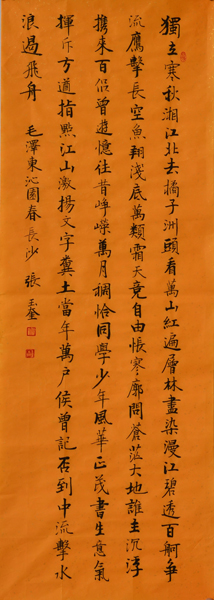 獨立寒秋湘江北去橘子洲頭看萬山紅遍層林盡染漫江碧透百舸争
流鷹擊長空魚翔淺底萬類霜天竟自由悵寥廓問蒼茫大地誰主沉浮
携來百侣曾遊憶往昔崢嶸歲月稠恰同學少年風華正茂書生意氣
揮斥方遒指點江山激揚文字糞土當年萬户侯曾記否到中流擊水
浪遏飛舟 毛澤東沁園春長沙 張玉奎